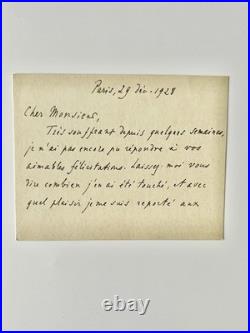 Paris, 29 déc. 1928
Cher Monsieur,
Très souffrant depuis quelques semaines,
je n'ai pas encore pu répondre à vos
aimables félicitations. Laissez-moi vous
dire combien j'en ai été touché, et avec
quel plaisir je me suis reporté aux